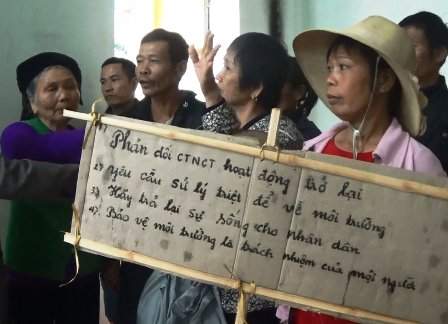 1/ Phản đối CTNCT hoạt động trở lại
2/ yêu cầu sử lý triệt để về môi trường
3/ Hãy trả lại sự sống cho nhân dân
4/ Bảo vệ môi trường là trách nhiệm của mọi người